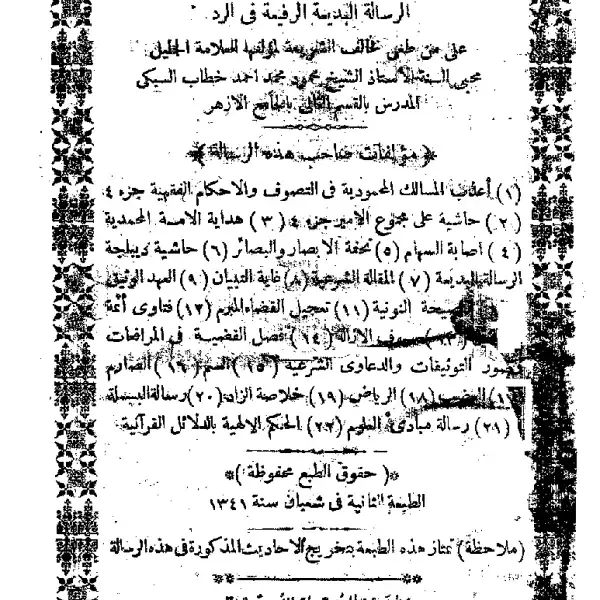 الرسالة البديعة الرفيعة فى الرد
على من طغى فخالف الشريعة لمؤلفها العلامة الجليل
محيى السنة الاستاذ الشيخ محمود محمد احمد خطاب السبكى
المدرس بالقسم العالى بالجامع الازهر
﴿ مؤلفات صاحب هذه الرسالة ﴾
(١) أعذب المسالك المحمودية فى التصوف والاحكام الفقهية جزء ٤
(٢) حاشية على مجموع الامير جزء ٤ (٣) هداية الامة المحمدية
(٤) اصابة السهام (٥) تحفة الابصار والبصائر (٦) حاشية ديباجة
الرسالة البديعة (٧) المقالة الشرعية (٨) غاية التبيان (٩) العهد الوثيق
النونية (١١) تعجيل القضاء المبرم (١٢) فتاوى أئمة
(١٤) فصل القضية فى المرافعات
التوثيقات والدعاوى الشرعية (١٥) السم (١٦) الصارم
(١٨) الرياض (١٩) خلاصة الزاد (٢٠) رسالة البسملة
(٢١) رسالة مبادئ العلوم (٢٢) الحكم الالهية بالدلائل القرآنية
*( حقوق الطبع محفوظة )*
الطبعة الثانية فى شعبان سنة ١٣٤١
(ملاحظة) تمتاز هذه الطبعة بتخريج الاحاديث المذكورة فى هذه الرسالة